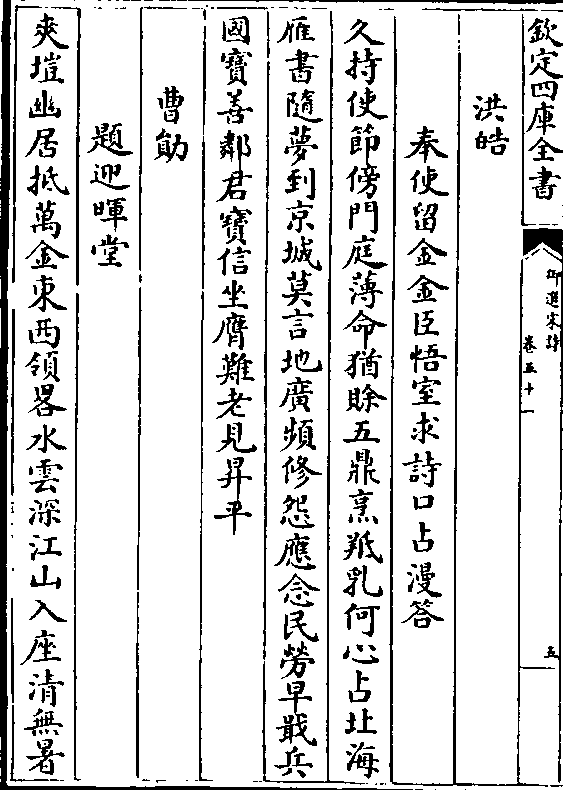 欽定四庫全書
御選宋詩
卷五十一
五
洪皓
奉使留金金臣悟室求詩口占漫答
久持使節傍門庭薄命猶賒五鼎烹羝乳何心占北海
雁書隨夢到京城莫言地廣頻修怨應念民勞早戢兵
國寶善鄰君寶信坐膺難老見昇平
曹勛
題迎暉堂
爽塏幽居抵萬金東西領畧水雲深江山入座清無暑